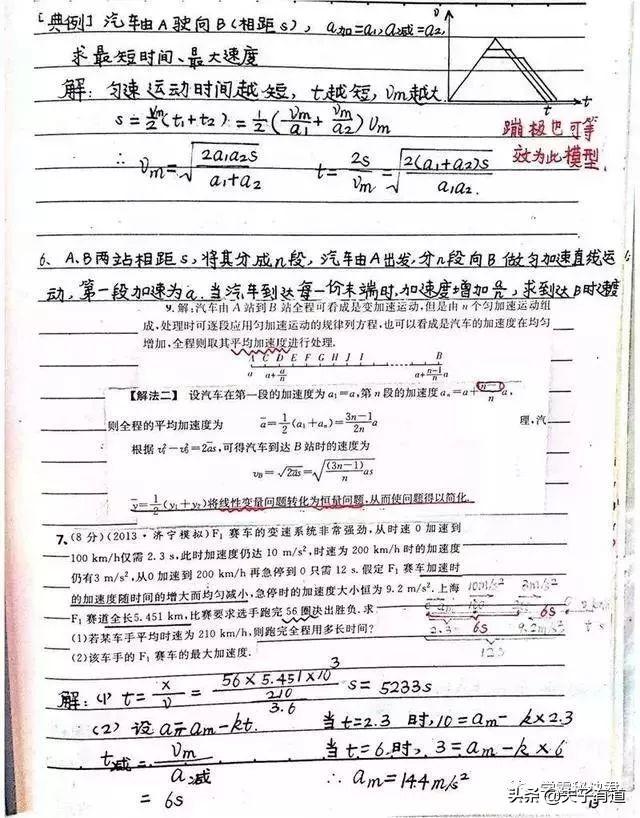 [典例] 汽车由A驶向B(相距s), a加=a₁, a减=a₂,
求最短时间、最大速度
解: 匀速运动时间越短, t越短, υm越大
s=υm/2(t₁+t₂)=1/2(υm/a₁+υm/a₂)υm
∴ υm=√(2a₁a₂s/(a₁+a₂)) t=2s/υm=√(2(a₁+a₂)s/(a₁a₂)).
υ
t t
蹦极也可等
效为此模型
6、A.B两站相距s, 将其分成n段, 汽车由A出发, 分n段向B做匀加速直线运
动, 第一段加速为a. 当汽车到达每一份末端时, 加速度增加a/n, 求到达B时速度
9. 解: 汽车由A站到B站全程可看成是变加速运动, 但是由n个匀加速运动组
成, 处理时可逐段应用匀加速运动的规律列方程, 也可以看成是汽车的加速度在均匀
增加, 全程则取其平均加速度进行处理.
A C D E F G H J I B
a a+a/n a+(n-1)/n a
【解法二】 设汽车在第一段的加速度为a₁=a, 第n段的加速度aₙ=a+(n-1)/n a,
则全程的平均加速度为 ā=1/2(a₁+aₙ)=(3n-1)/2n a 理, 汽
根据υₜ²-υ₀²=2as, 可得汽车到达B站时的速度为
υB=√2as=√((3n-1)/n as)
ȳ=1/2(y₁+y₂)将线性变量问题转化为恒量问题, 从而使问题得以简化.
7. (8分)(2013·济宁模拟)F₁赛车的变速系统非常强劲, 从时速0加速到
100 km/h仅需2.3 s, 此时加速度仍达10 m/s², 时速为200 km/h时的加速度
仍有3 m/s², 从0加速到200 km/h再急停到0只需12 s. 假定F₁赛车加速时
的加速度随时间的增大而均匀减小, 急停时的加速度大小恒为9.2 m/s². 上海
F₁赛道全长5.451 km, 比赛要求选手跑完56圈决出胜负. 求
(1)若某车手平均时速为210 km/h, 则跑完全程用多长时间?
(2)该车手的F₁赛车的最大加速度.
10m/s² 3m/s²
6s
2.3 6s 9.2m/s² t s
12s
解: (1) t=x/υ=(56×5.451×10³)/(210/3.6) s=5233s
(2) 设a=am-kt. 当t=2.3时, 10=am-k×2.3
t减=υm/a减 当t=6时, 3=am-k×6
=6s ∴ am=14.4m/s²
头条@夫子有道
15